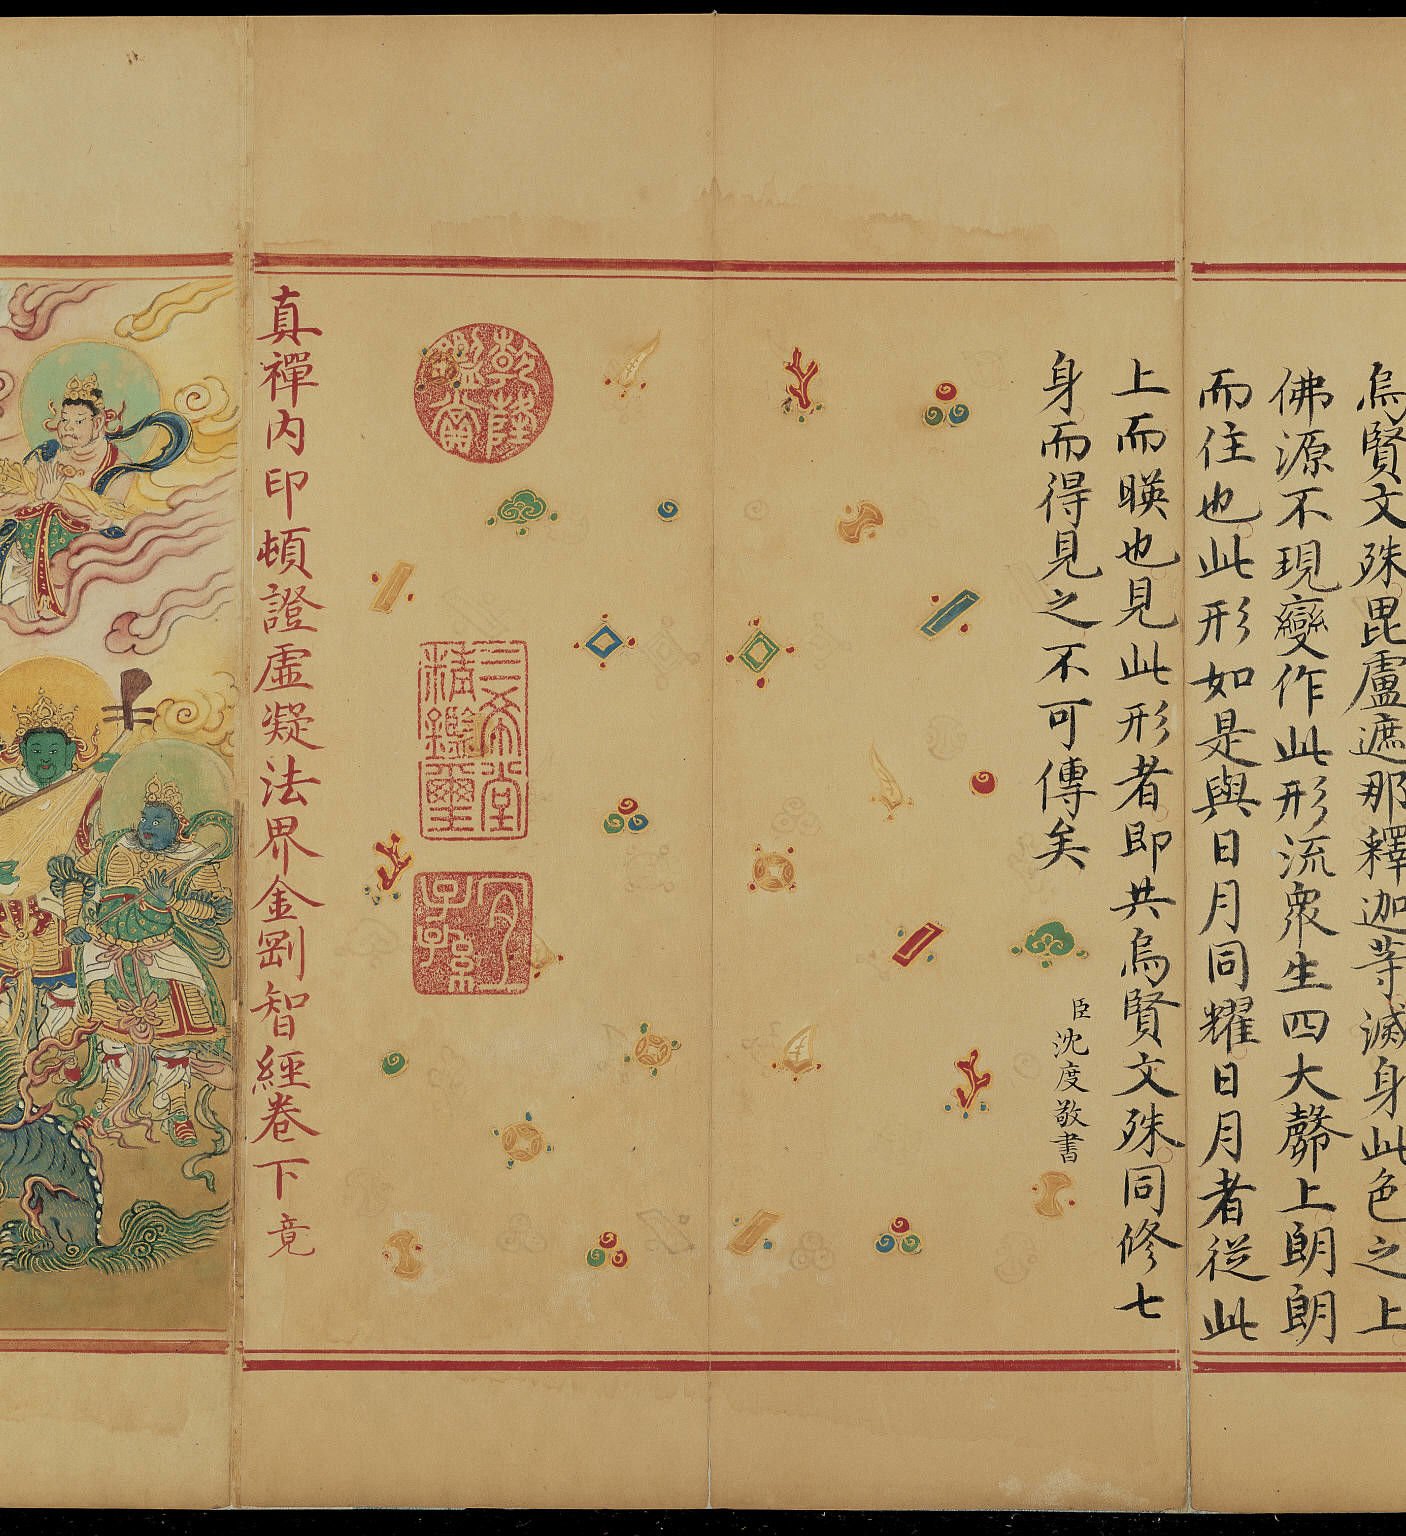 烏賢文殊毘盧遮那釋迦等滅身此色之上
佛源不現變作此形流眾生四大髒上朗朗
而住也此形如是與日月同耀日月者從此
上而暎也見此形者即共烏賢文殊同修七
身而得見之不可傳矣
臣沈度敬書
乾隆鑑賞
三希堂精鑑璽
宜子孫
真禪內印頓證虛凝法界金剛智經卷下竟